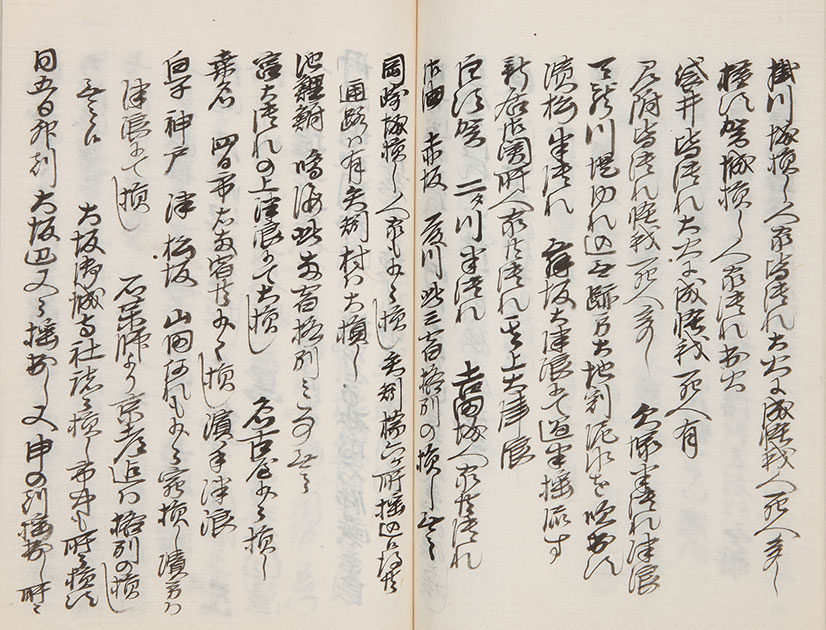 掛川 城損し人家皆潰れ大火ニ成怪我人死人多し
横須賀城損し人家潰れ出火
袋井皆潰れ大火ニ成怪我死人有
見附皆潰れ怪我死人多し 大塚半潰れ津浪
天龍川堤ゆれ込 大地割泥水を吹出ス
濱松半潰れ 舞坂大津浪ニて過半揺流す
新居御関所人家共潰れ其上大津浪
白須賀 二タ川半潰れ 吉田城人家共潰れ
御油 赤坂 此三宿格別の損し無之
岡崎城損し人家も少々損し 矢矧橋 所揺込
通路ハ有矢矧村ハ大損し
池鯉鮒 鳴海此両宿格別之事無之
宮大潰れの上津浪ニて大損し 名古屋少々損し
桑名 四日市右両宿共少々損し 濱手津浪
白子 神戸 津 松坂 山田何れも少々宛損し濱方ハ
津浪ニて損し 石薬師より京都迄ハ格別の損し
無之候 大坂御城寺社諸々損し市中も所々損候
同五日 大坂辺又々揺出し又申の刻揺出し所々